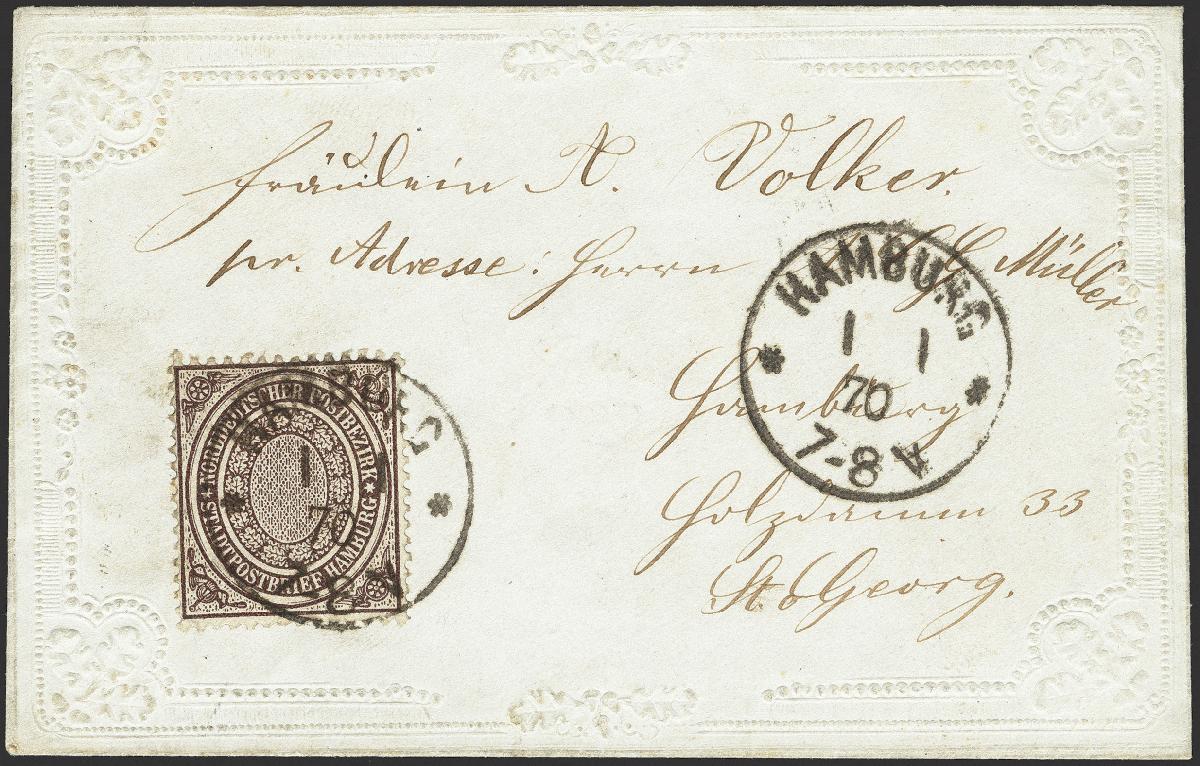 Fräulein A. Volker.
pr. Adresse: Herrn Müller
Hamburg
Holzdamm 33
St. Georg.
HAMBURG
1 1
70
7-8 V
NORDDEUTSCHER POSTBEZIRK
STADTPOSTBRIEF HAMBURG